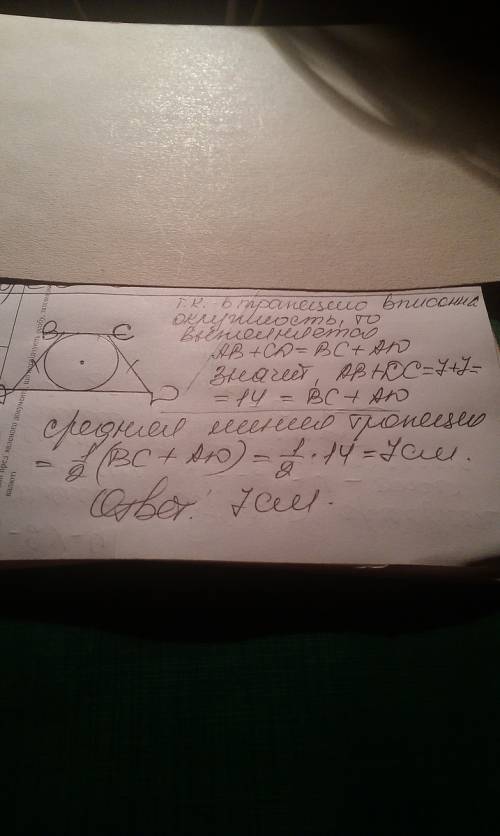 т.к. в трапецию вписана
окружность, то
выполняется
AB + CD = BC + AD
Значит, AB + DC = 7+7=
= 14 = BC + AD
B C
D
средняя линия трапеции
= 1/2 (BC + AD) = 1/2 · 14 = 7 см.
Ответ: 7 см.